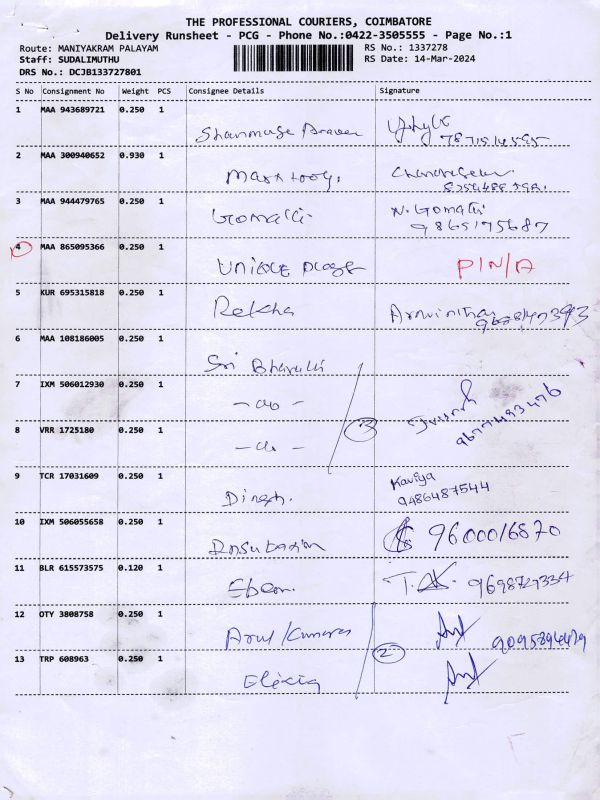 THE PROFESSIONAL COURIERS, COIMBATORE
Delivery Runsheet - PCG - Phone No.:0422-3505555 - Page No.:1
Route: MANIYAKRAM PALAYAM RS No.: 1337278
Staff: SUDALIMUTHU RS Date: 14-Mar-2024
DRS No.: DCJB133727801
S No Consignment No Weight PCS Consignee Details Signature
1 MAA 943689721 0.250 1
2 MAA 300940652 0.930 1
3 MAA 944479765 0.250 1
Gomathi N. Gomathi
9865175687
4 MAA 865095366 0.250 1
UNIQUE P/N/A
5 KUR 695315818 0.250 1
Rekha
6 MAA 108186005 0.250 1
Sri Bharathi
7 IXM 506012930 0.250 1
- do -
3
8 VRR 1725180 0.250 1
- do -
9677493476
9 TCR 17031609 0.250 1
Kaviya
Dinesh. 9486487544
10 IXM 506055658 0.250 1
9600016870
11 BLR 615573575 0.120 1
12 OTY 3808758 0.250 1
Arul Kumaran
2
13 TRP 608963 0.250 1